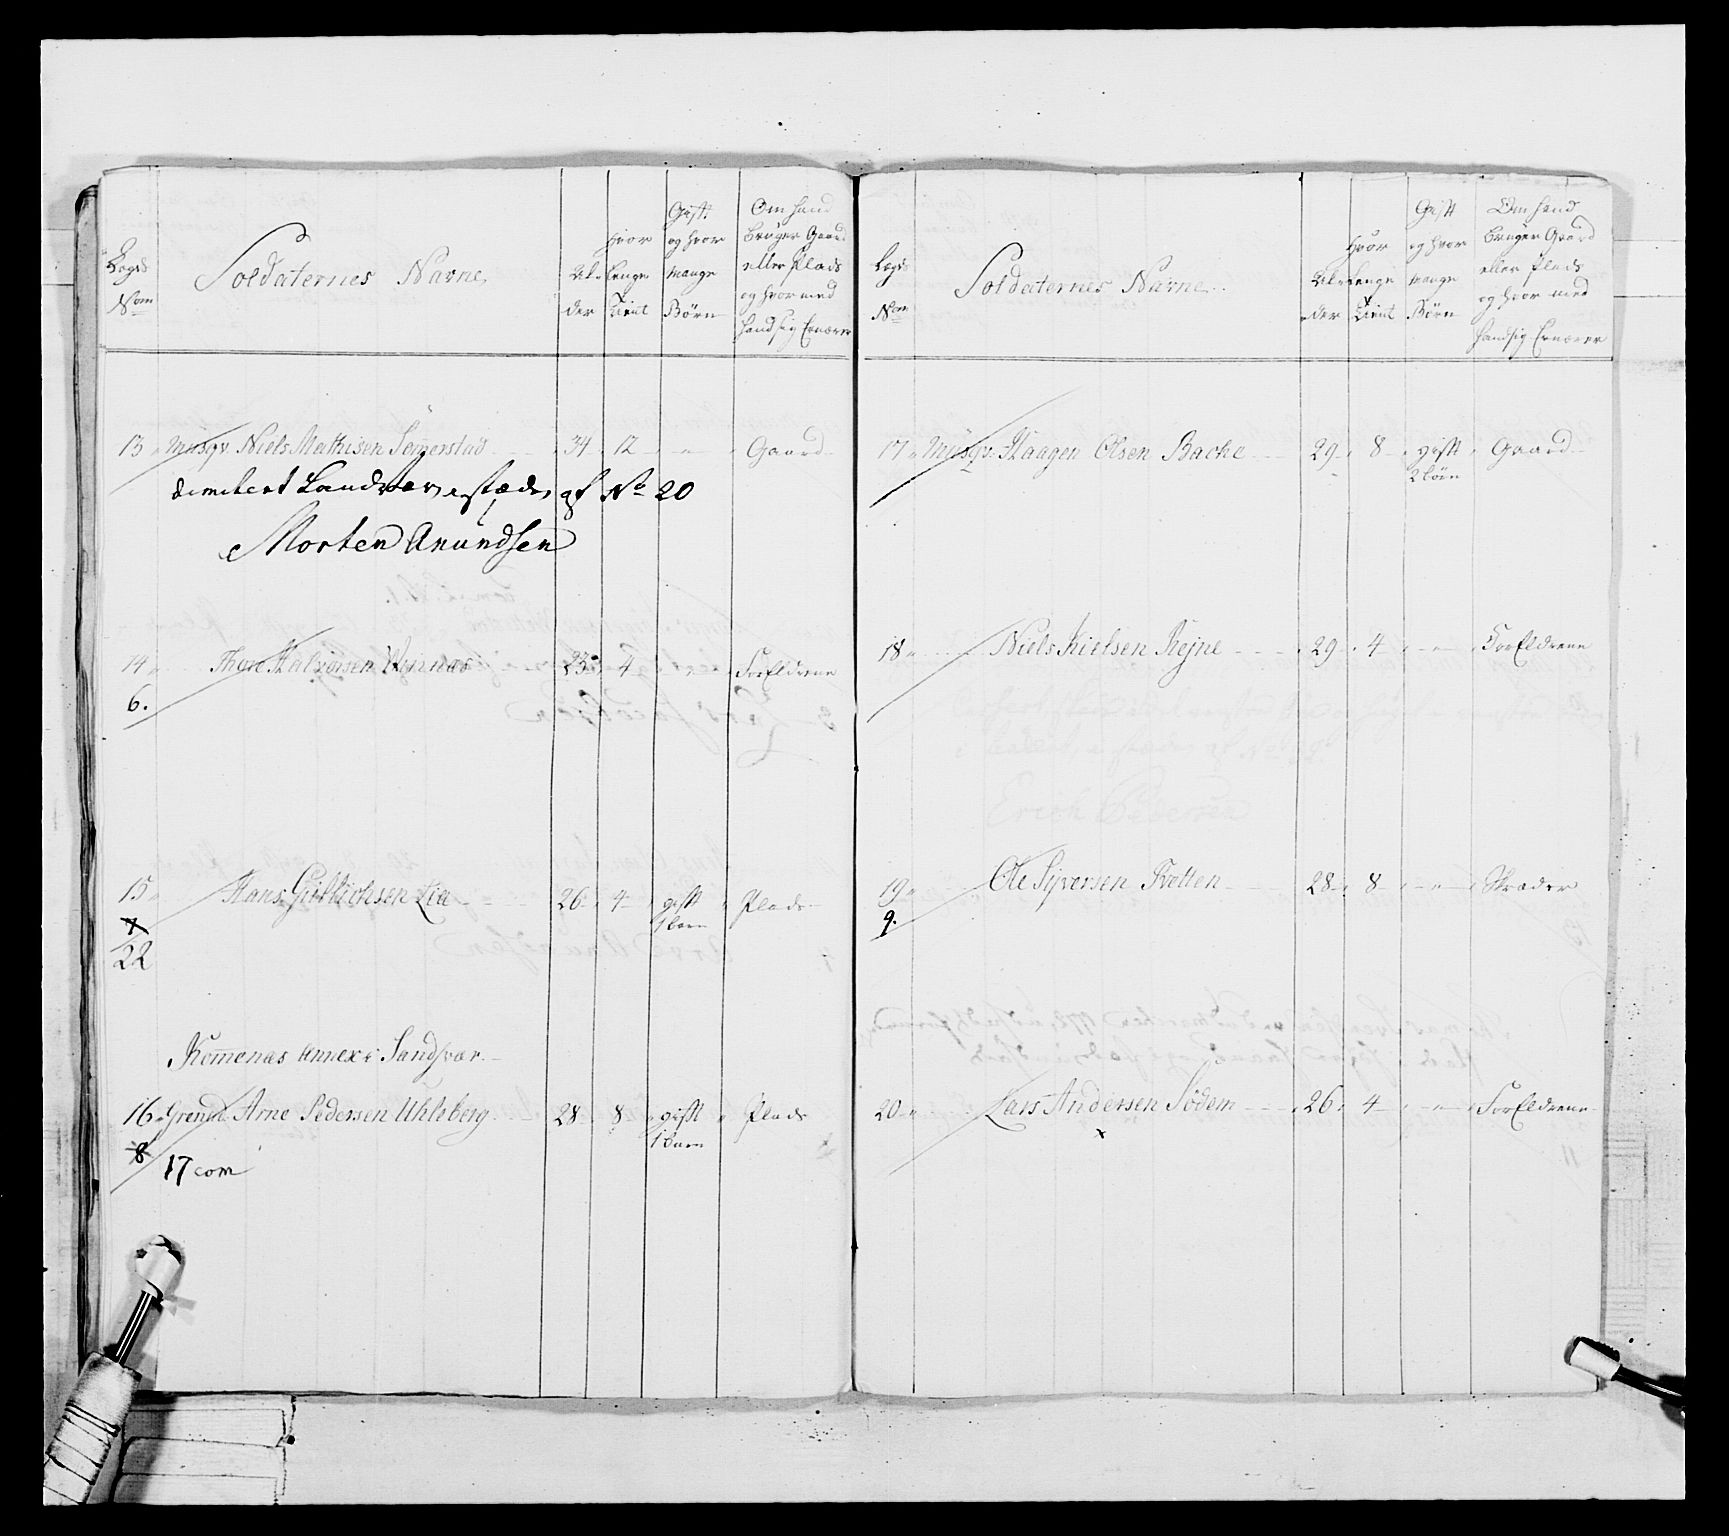 Legds Nom
Soldaternes Navne
Al-der
Hvor Lenge Tient
Gift og Hvor mange Børn
Om hand Bruger Gaard eller Plads og hvor med hand sig Ernærer
13 Musqv. Niels Mathisen Semerstad 34 12 " Gaard
dimitert Landværn i stæden af No 20
Morten Anundsen
14 Thore Halvorsen 23 4 " ForEldrene
6.
15 Hans Gullichsen Lia 26 4 gift 1 barn Plads
7
22
Komenas Annex i Sandsvær
16 Grenad. Arne Pedersen Uhleberg 28 8 gift 1 barn Plads
8 17 com
Legds Nom
Soldaternes Navne
Al-der
Hvor Lenge Tient
Gift og hvor mange Børn
Om hand Bruger Gaard eller Plads og hvor med hand sig Ernærer
17 Musqv. Haagen Olsen Bache 29 8 gift 2 børn Gaard
18 Niels Kielsen Rejne 29 4 " ForEldrene
19 Ole Syversen Tvetten 28 8 " Skræder
9.
20 Lars Andersen Sødem 26 4 " ForEldrene
x